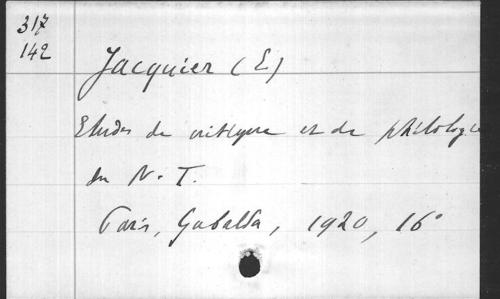 317
142
Jacquier (E)
Etudes de critique et de philologie
du N. T.
Paris, Gabalda, 1920, 16°